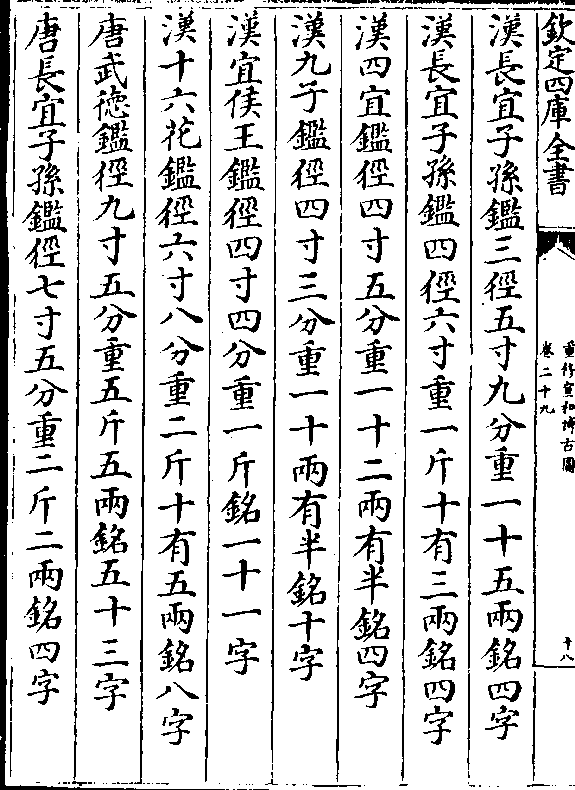 欽定四庫全書
重修宣和博古圖
卷二十九
十八
漢長宜子孫鑑三徑五寸九分重一十五兩銘四字
漢長宜子孫鑑四徑六寸重一斤十有三兩銘四字
漢四宜鑑徑四寸五分重一十二兩有半銘四字
漢九子鑑徑四寸三分重一十兩有半銘十字
漢宜侯王鑑徑四寸四分重一斤銘一十一字
漢十六花鑑徑六寸八分重二斤十有五兩銘八字
唐武德鑑徑九寸五分重五斤五兩銘五十三字
唐長宜子孫鑑徑七寸五分重二斤二兩銘四字